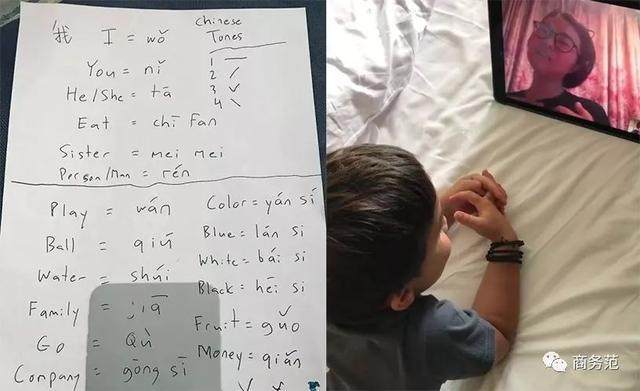 我 I = wǒ
Chinese
Tones
1 —
2 ⁄
3 ✓
4 \
You = nǐ
He/She = tā
Eat = chī Fan
Sister = mei mei
Person/Man = rén
Play = wán
Color = yán sí
Ball = qiú
Blue = lán si
Water = shúi
White = bái si
Family = jiā
Black = hēi si
Go = Qù
Fruit = gǔo
Company = gōng sī
Money = qián
商务范